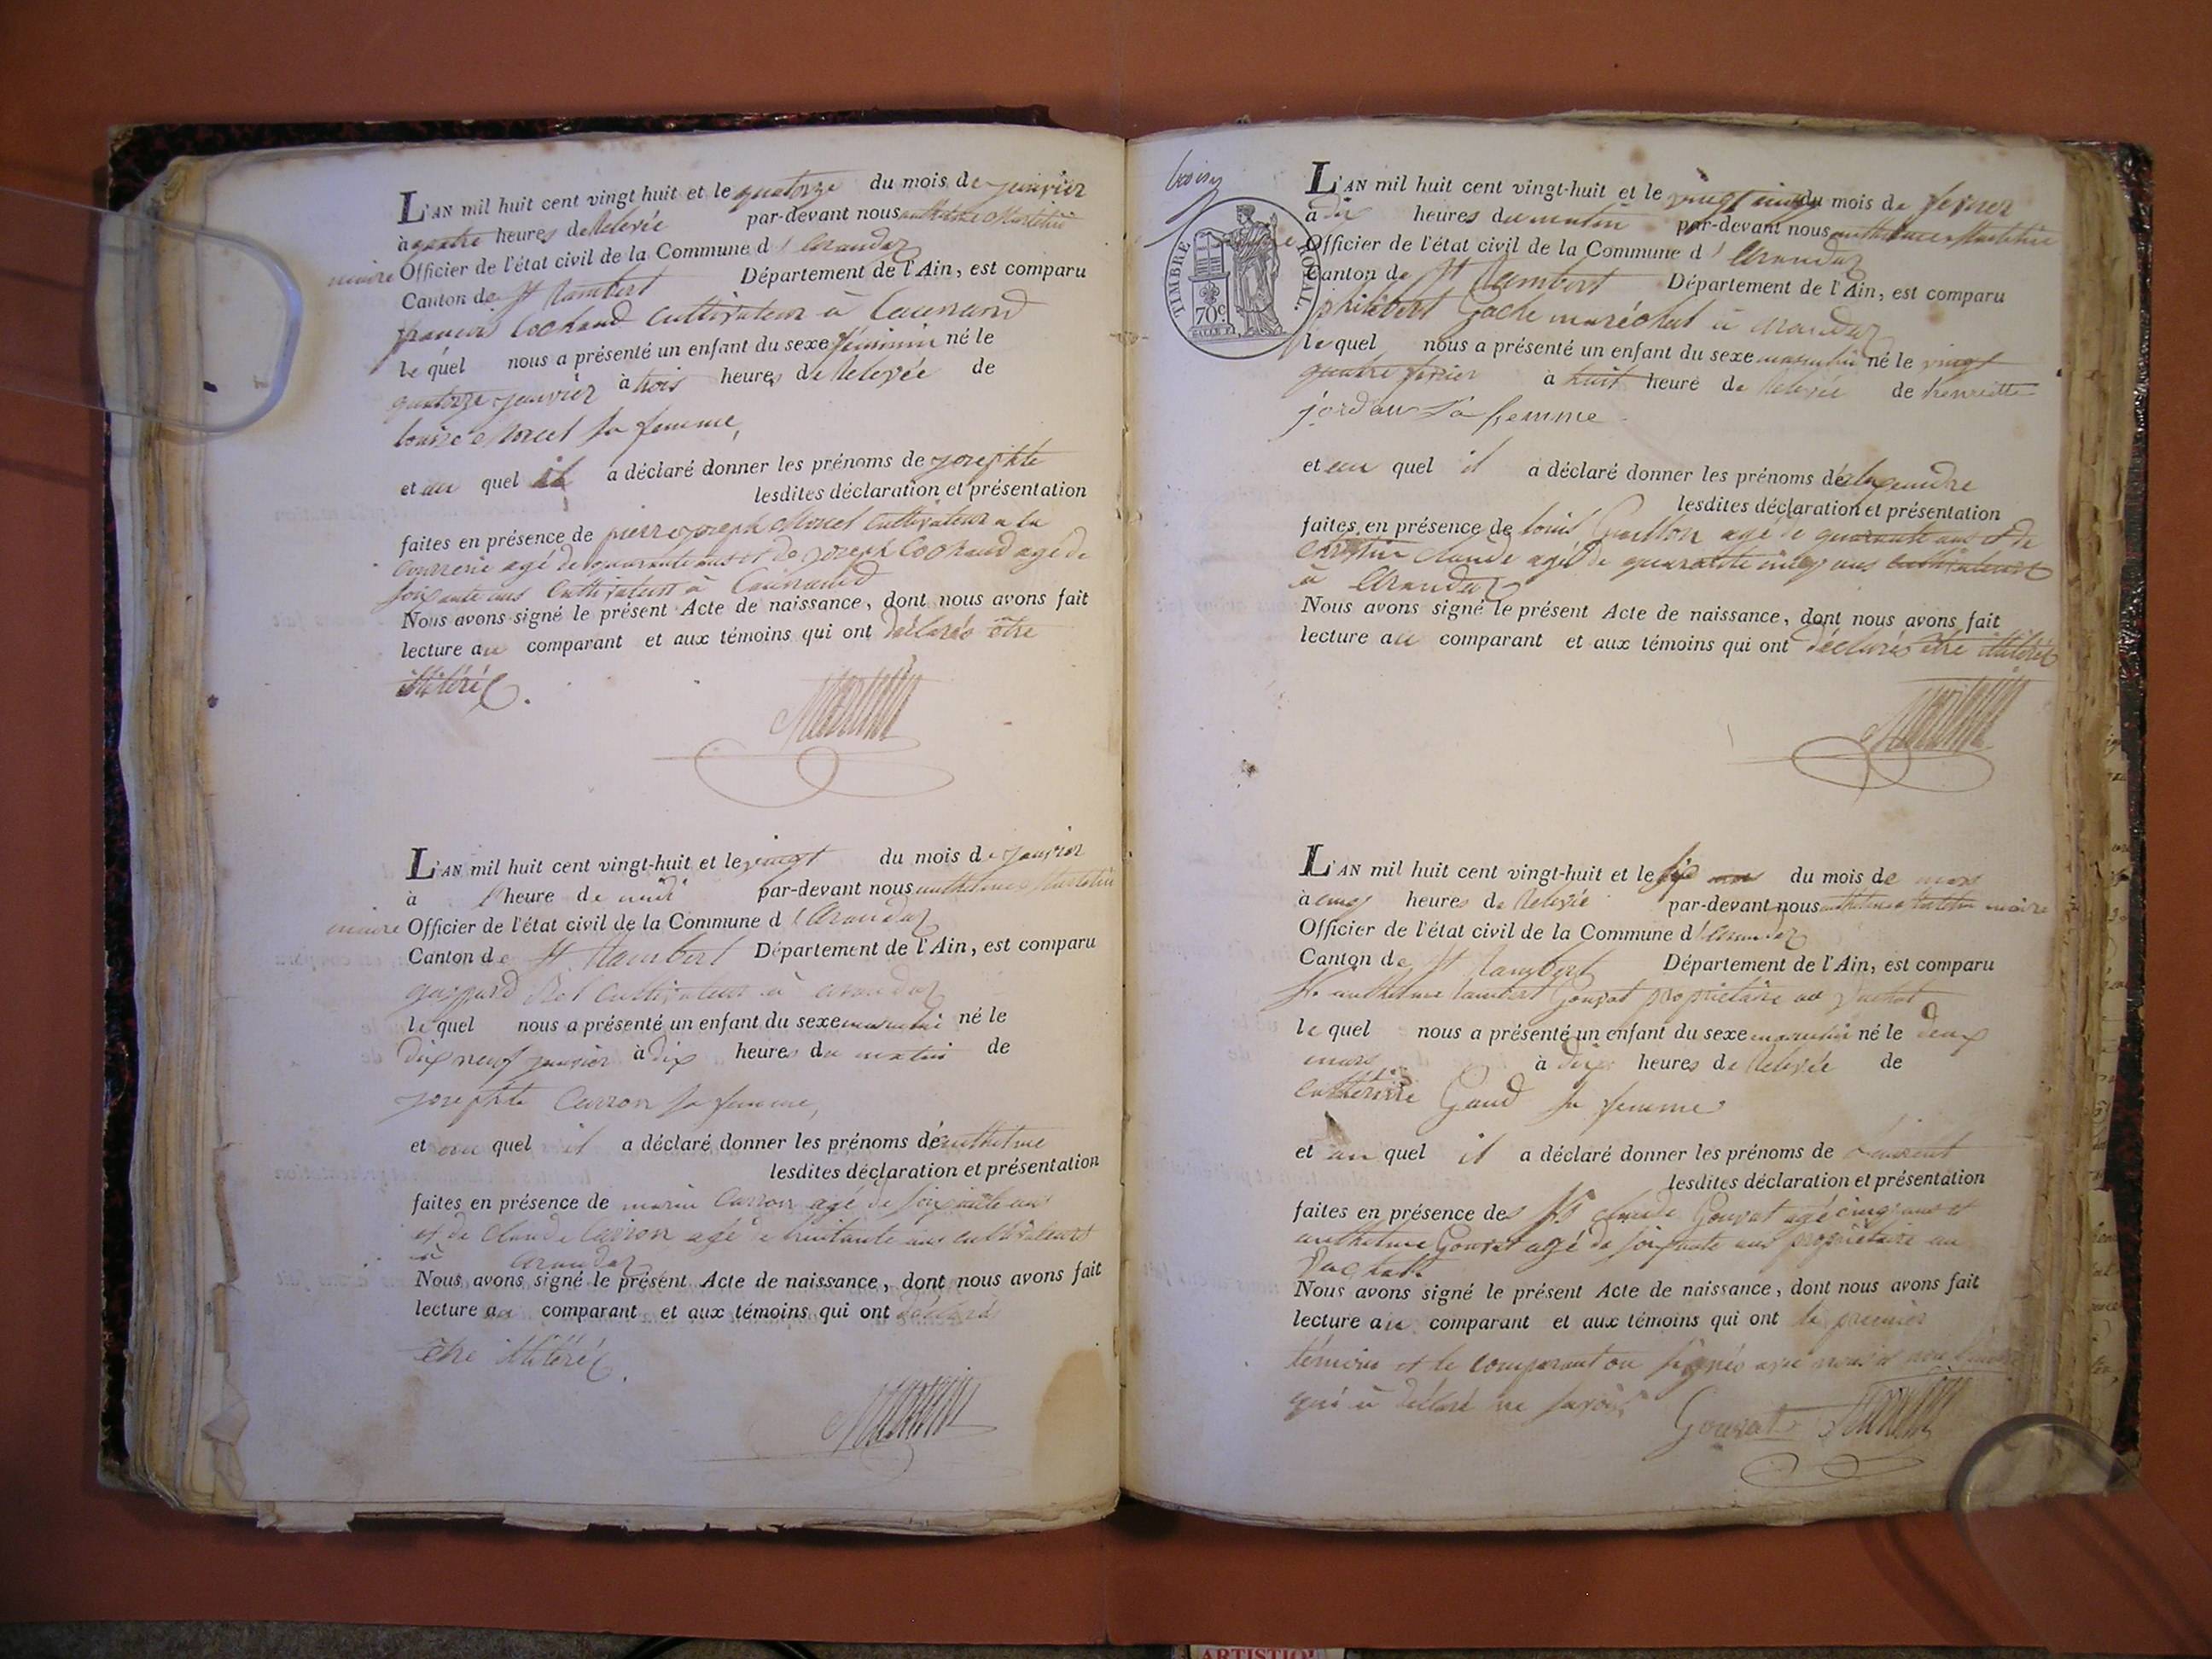 L'AN mil huit cent vingt huit et le quatorze du mois de janvier
à quatre heures de Relevée par-devant nous anthelme Martelin
maire Officier de l'état civil de la Commune d'arandaz
Canton de St Rambert Département de l'Ain, est comparu
françois Cochand Cultivateur à
le quel nous a présenté un enfant du sexe féminin né le
quatorze janvier à trois heures de Relevée de
louise Morcel sa femme,
et au quel il a déclaré donner les prénoms de josephte
lesdites déclaration et présentation
faites en présence de pierre joseph Morcel Cultivateur a la
agé de quarante ans et de joseph Cochand agé de
soixante ans Cultivateur à
Nous avons signé le présent Acte de naissance, dont nous avons fait
lecture au comparant et aux témoins qui ont déclarés être
illitérés.
L'AN mil huit cent vingt-huit et le vingt du mois de janvier
à l'heure de midi par-devant nous anthelme Martelin
maire Officier de l'état civil de la Commune d'arandaz
Canton de St Rambert Département de l'Ain, est comparu
gaspard Cultivateur à arandaz
le quel nous a présenté un enfant du sexe masculin né le
dix neuf janvier à dix heures du matin de
josephte Carron sa femme,
et au quel il a déclaré donner les prénoms de anthelme
lesdites déclaration et présentation
faites en présence de marin Carron agé de soixante ans
et de Claude Carron agé de huitante ans cultivateurs
à arandaz
Nous avons signé le présent Acte de naissance, dont nous avons fait
lecture au comparant et aux témoins qui ont déclarés
être illitérés.
TIMBRE ROYAL.
70c.
L'AN mil huit cent vingt-huit et le vingt cinq du mois de fevrier
à dix heures du matin par-devant nous anthelme Martelin
maire Officier de l'état civil de la Commune d'arandaz
Canton de St Rambert Département de l'Ain, est comparu
philibert Gache maréchal à arandaz
le quel nous a présenté un enfant du sexe masculin né le vingt
quatre fevrier à huit heure de Relevée de henriette
jordan sa femme
et au quel il a déclaré donner les prénoms de alexandre
lesdites déclaration et présentation
faites en présence de louis agé de quarante ans et de
claude agé de quarante cinq ans cultivateurs
à arandaz
Nous avons signé le présent Acte de naissance, dont nous avons fait
lecture au comparant et aux témoins qui ont déclarés être illitérés
L'AN mil huit cent vingt-huit et le six du mois de mars
à cinq heures de Relevée par-devant nous anthelme Martelin maire
Officier de l'état civil de la Commune d'arandaz
Canton de St Rambert Département de l'Ain, est comparu
anthelme lambert Gourat propriétaire au
le quel nous a présenté un enfant du sexe masculin né le deux
mars à dix heures de Relevée de
catherine Gaud sa femme
et au quel il a déclaré donner les prénoms de
lesdites déclaration et présentation
faites en présence de claude Gourat agé cinq ans et
anthelme Gourat agé de soixante ans propriétaire au
Nous avons signé le présent Acte de naissance, dont nous avons fait
lecture au comparant et aux témoins qui ont le premier
témoin et le comparant on signés avec nous et non
qui a déclaré ne savoir
Gourat